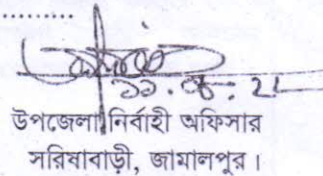 উপজেলা নির্বাহী অফিসার
সরিষাবাড়ী, জামালপুর।